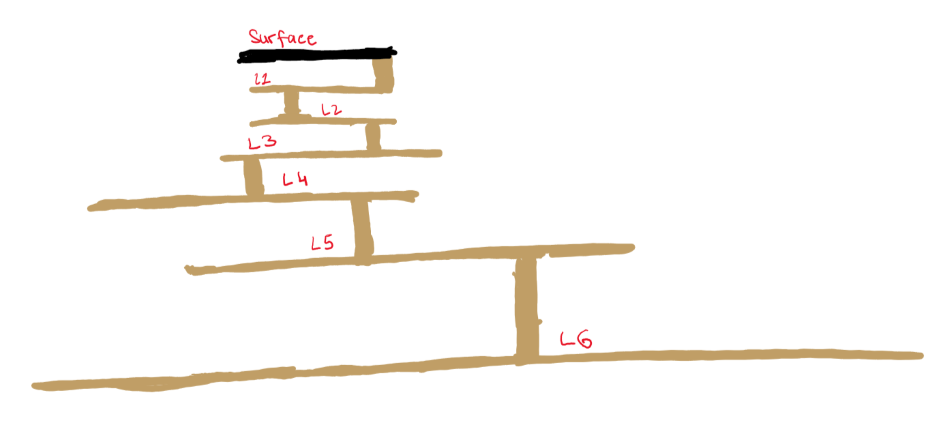 Surface
L1
L2
L3
L4
L5
L6